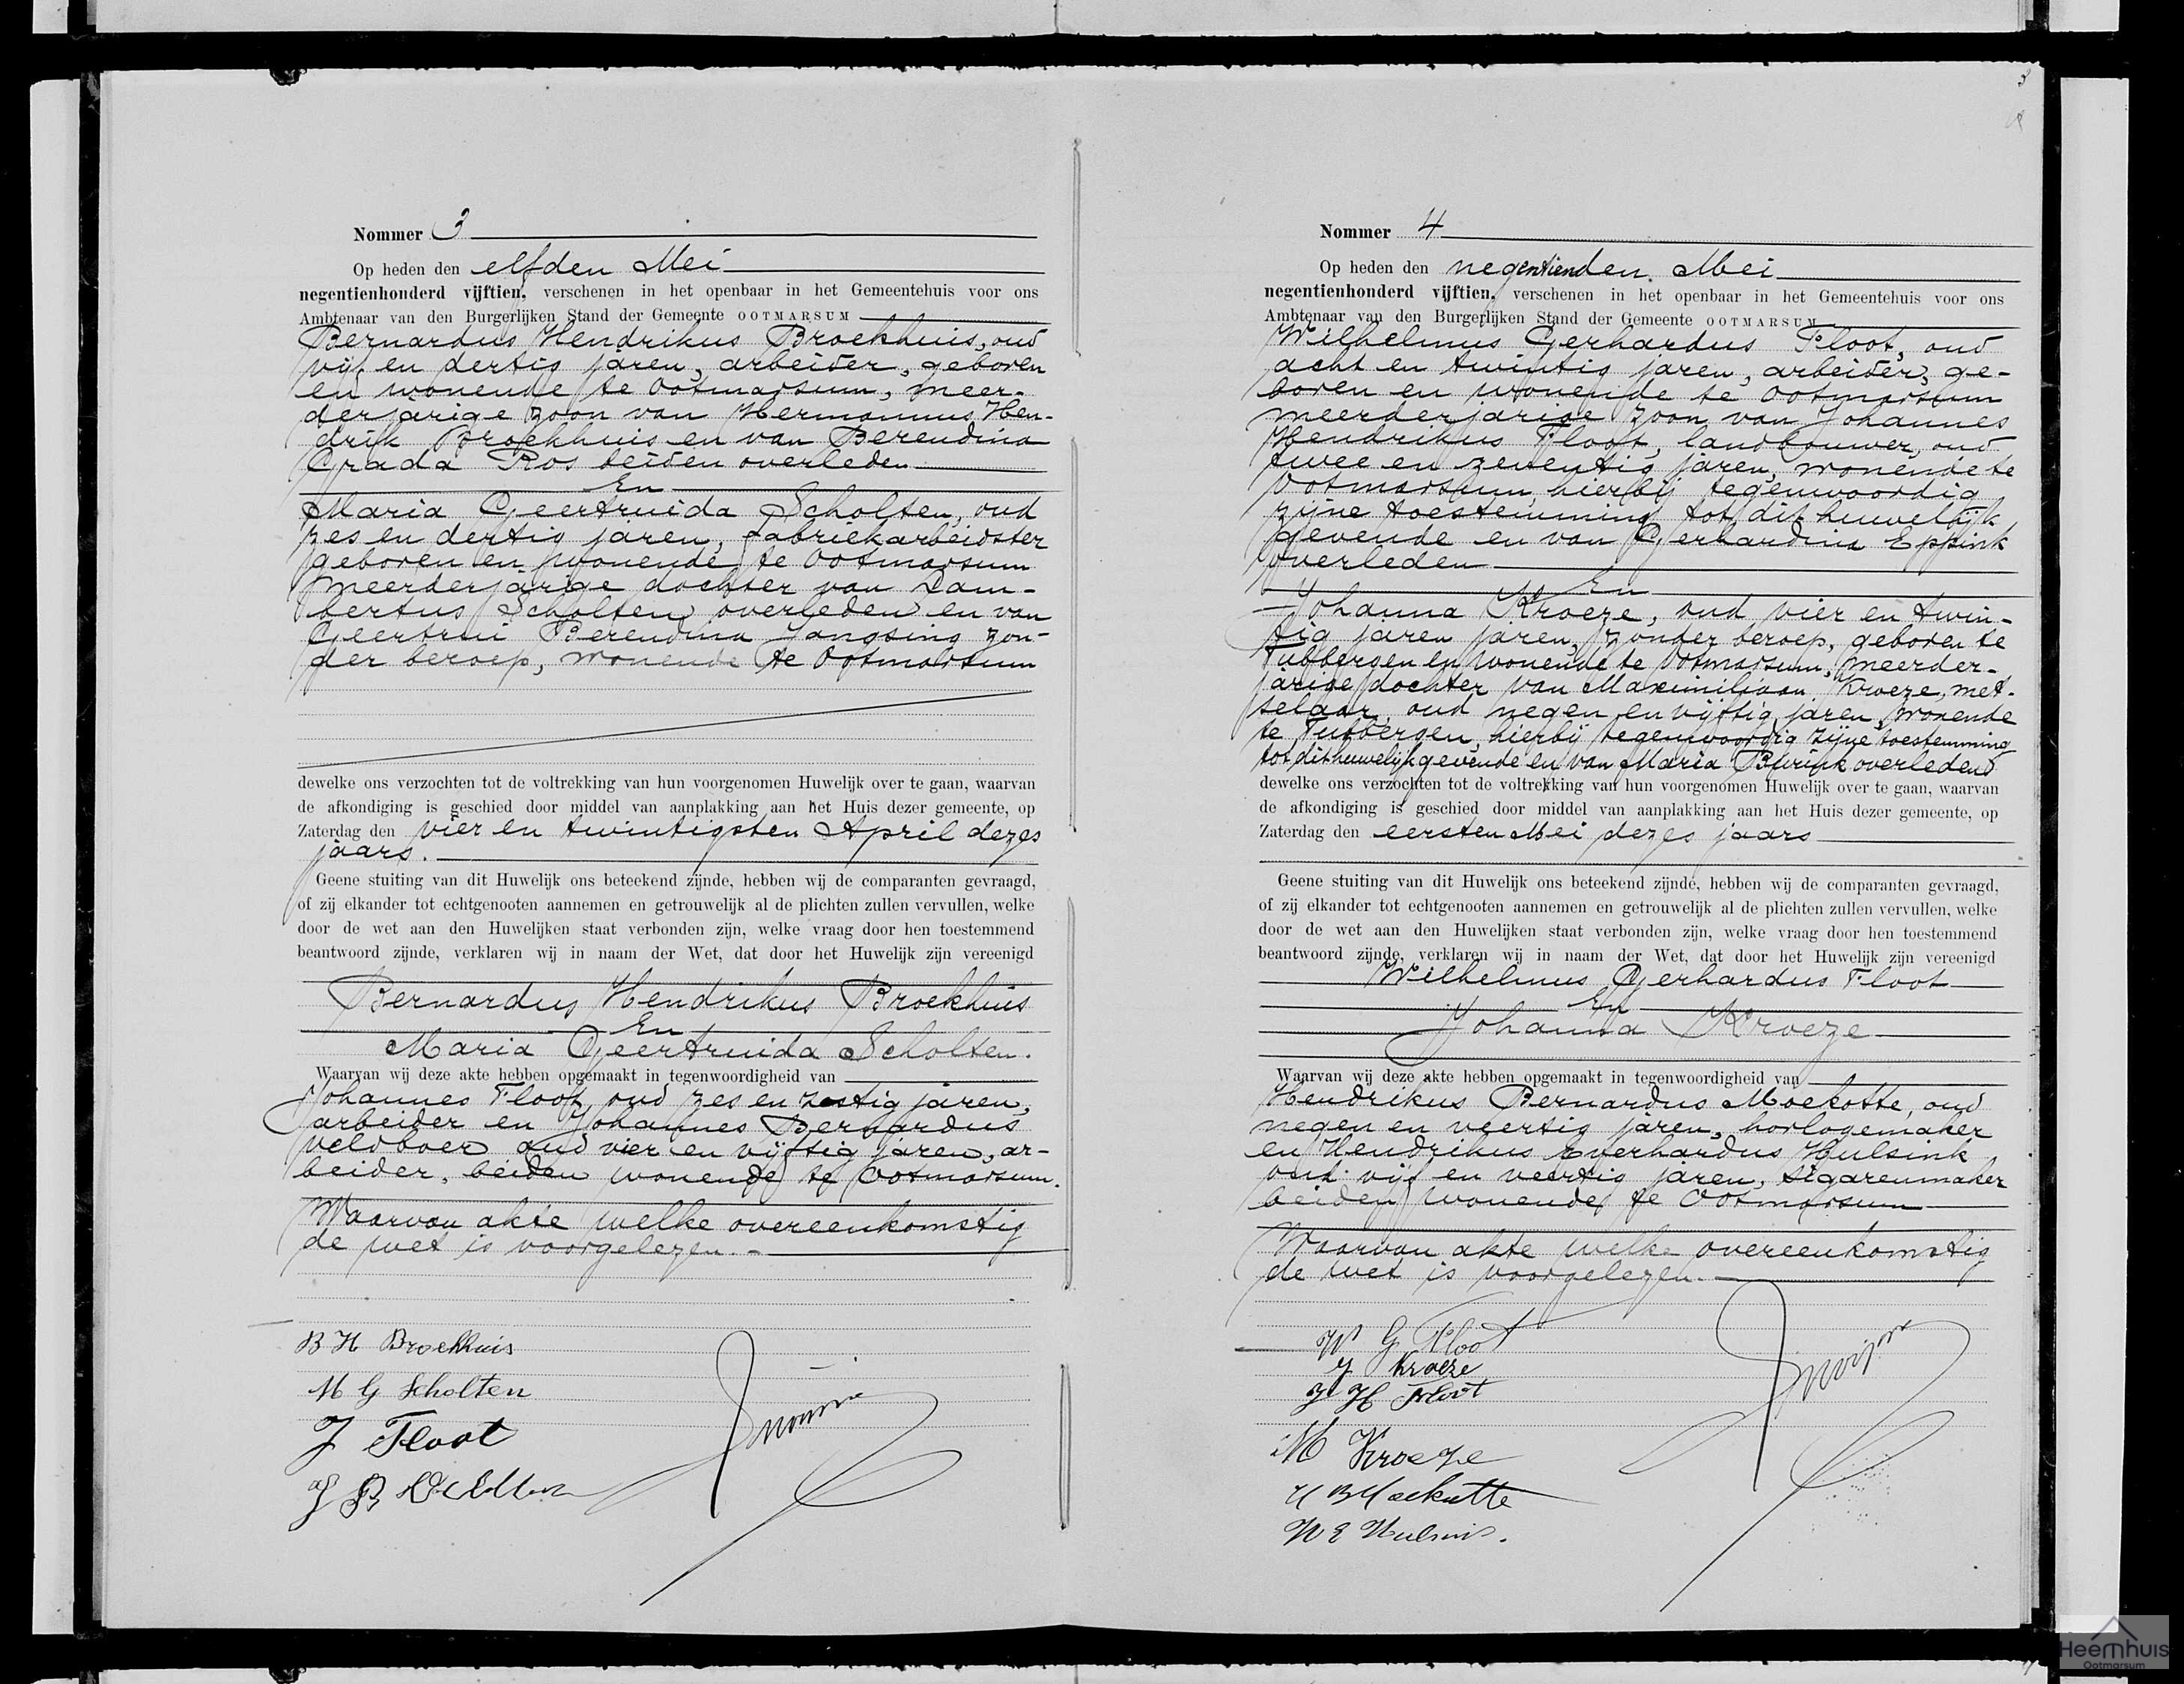 Nommer 3
Op heden den elfden Mei
negentienhonderd vijftien, verschenen in het openbaar in het Gemeentehuis voor ons
Ambtenaar van den Burgerlijken Stand der Gemeente OOTMARSUM
Bernardus Hendrikus Broekhuis, oud
vijf en dertig jaren, arbeider, geboren
en wonende te Ootmarsum, meer-
derjarige zoon van Hermannus Hen-
drik Broekhuis en van Berendina
Grada Ros beiden overleden
En
Maria Geertruida Scholten, oud
zes en dertig jaren, fabriekarbeidster
geboren en wonende te Ootmarsum
meerderjarige dochter van Lam-
bertus Scholten overleden en van
Geertrui Berendina Jangsing zon-
der beroep, wonende te Ootmarsum
dewelke ons verzochten tot de voltrekking van hun voorgenomen Huwelijk over te gaan, waarvan
de afkondiging is geschied door middel van aanplakking aan het Huis dezer gemeente, op
Zaterdag den vier en twintigsten April dezes
jaars.
Geene stuiting van dit Huwelijk ons beteekend zijnde, hebben wij de comparanten gevraagd,
of zij elkander tot echtgenooten aannemen en getrouwelijk al de plichten zullen vervullen, welke
door de wet aan den Huwelijken staat verbonden zijn, welke vraag door hen toestemmend
beantwoord zijnde, verklaren wij in naam der Wet, dat door het Huwelijk zijn vereenigd
Bernardus Hendrikus Broekhuis
En
Maria Geertruida Scholten.
Waarvan wij deze akte hebben opgemaakt in tegenwoordigheid van
Johannes Floot, oud zes en zestig jaren,
arbeider en Johannes Bernardus
Veldboer oud vier en vijftig jaren, ar-
beider, beiden wonende te Ootmarsum.
Waarvan akte welke overeenkomstig
de wet is voorgelezen.
B H Broekhuis
M G Scholten
J Floot
J B
Nommer 4
Op heden den negentienden Mei
negentienhonderd vijftien, verschenen in het openbaar in het Gemeentehuis voor ons
Ambtenaar van den Burgerlijken Stand der Gemeente OOTMARSUM
Wilhelmus Gerhardus Floot, oud
acht en twintig jaren, arbeider, ge-
boren en wonende te Ootmarsum
meerderjarige zoon van Johannes
Hendrikus Floot, landbouwer, oud
twee en zeventig jaren, wonende te
Ootmarsum, hierbij tegenwoordig
zijne toestemming tot dit huwelijk
gevende en van Gerhardina Eppink
overleden
En
Johanna Kroeze, oud vier en twin-
tig jaren jaren, zonder beroep, geboren te
Tubbergen en wonende te Ootmarsum, meerder-
jarige dochter van Maximiliaan Kroeze, met-
selaar, oud negen en vijftig jaren, wonende
te Tubbergen, hierbij tegenwoordig zijne toestemming
tot dit huwelijk gevende en van Maria overleden
dewelke ons verzochten tot de voltrekking van hun voorgenomen Huwelijk over te gaan, waarvan
de afkondiging is geschied door middel van aanplakking aan het Huis dezer gemeente, op
Zaterdag den eersten Mei dezes jaars
Geene stuiting van dit Huwelijk ons beteekend zijnde, hebben wij de comparanten gevraagd,
of zij elkander tot echtgenooten aannemen en getrouwelijk al de plichten zullen vervullen, welke
door de wet aan den Huwelijken staat verbonden zijn, welke vraag door hen toestemmend
beantwoord zijnde, verklaren wij in naam der Wet, dat door het Huwelijk zijn vereenigd
Wilhelmus Gerhardus Floot
En
Johanna Kroeze
Waarvan wij deze akte hebben opgemaakt in tegenwoordigheid van
Hendrikus Bernardus Moekotte, oud
negen en veertig jaren, horlogemaker
en Hendrikus Everhardus Hulsink
oud vijf en veertig jaren, sigarenmaker
beiden wonende te Ootmarsum
Waarvan akte welke overeenkomstig
de wet is voorgelezen.
W G Floot
J Kroeze
J H Floot
M Kroeze
H B Moekotte
Heemhuis
Ootmarsum